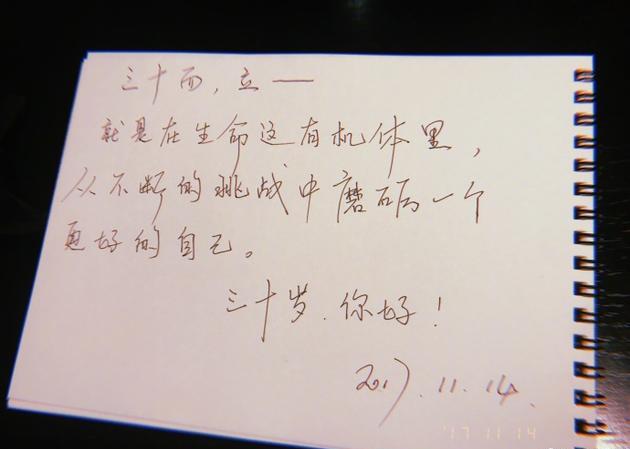 三十而,立——
就是在生命这有机体里,
从不断的挑战中磨砺一个
更好的自己。
三十岁.你好!
2017.11.14.
'17 11 14